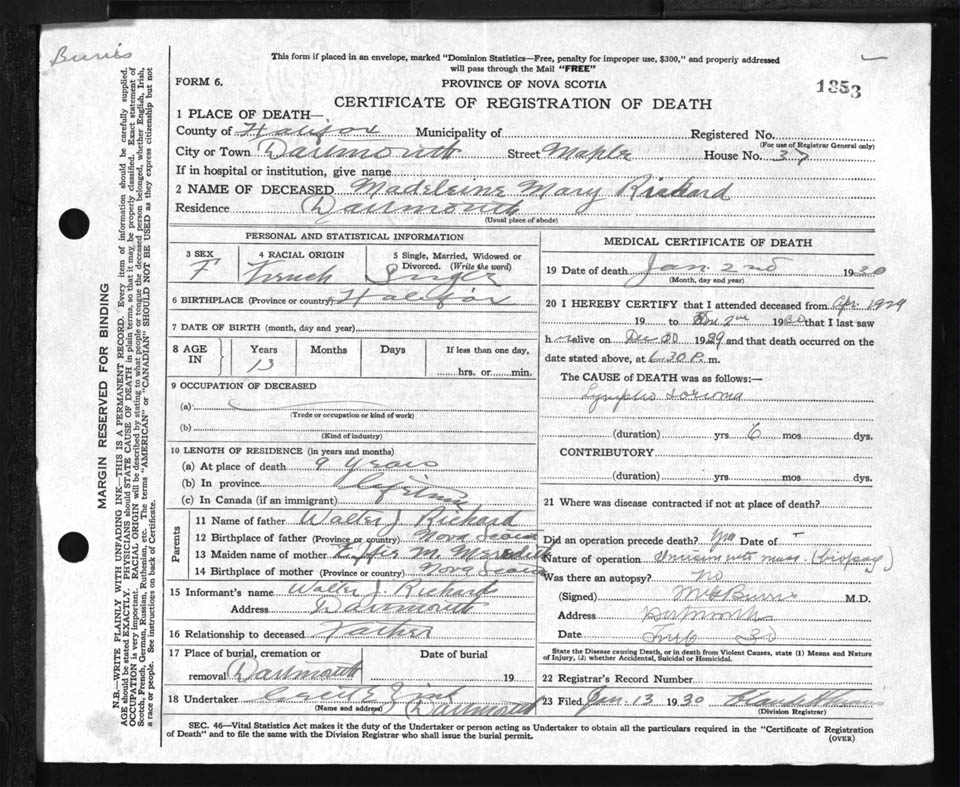 Burris
This form if placed in an envelope, marked "Dominion Statistics—Free, penalty for improper use, $300," and properly addressed
will pass through the Mail "FREE"
FORM 6.
PROVINCE OF NOVA SCOTIA
1353
CERTIFICATE OF REGISTRATION OF DEATH
MARGIN RESERVED FOR BINDING
N.B.—WRITE PLAINLY WITH UNFADING INK—THIS IS A PERMANENT RECORD. Every item of information should be carefully supplied.
AGE should be stated EXACTLY. PHYSICIANS should STATE CAUSE OF DEATH in plain terms, so that it may be properly classified. Exact statement of
OCCUPATION is very important. RACIAL ORIGIN will be described by stating to what people or tongue the deceased person belonged, whether English, Irish,
Scotch, French, German, Russian, Ruthenian, etc. The terms "AMERICAN" or "CANADIAN" SHOULD NOT BE USED as they express citizenship but not
a race or people. See instructions on back of Certificate.
1 PLACE OF DEATH—
County of Halifax Municipality of Registered No.
(For use of Registrar General only)
City or Town Dartmouth Street Maple House No. 37
If in hospital or institution, give name
2 NAME OF DECEASED Madeleine Mary Rickard
Residence Dartmouth
(Usual place of abode)
PERSONAL AND STATISTICAL INFORMATION
3 SEX 4 RACIAL ORIGIN 5 Single, Married, Widowed or
Divorced. (Write the word)
F French Single
6 BIRTHPLACE (Province or country) Halifax
7 DATE OF BIRTH (month, day and year)
8 AGE IN Years Months Days If less than one day,
13 hrs. or min.
9 OCCUPATION OF DECEASED
(a)
(Trade or occupation or kind of work)
(b)
(Kind of industry)
10 LENGTH OF RESIDENCE (in years and months)
(a) At place of death 9 years
(b) In province Lifetime
(c) In Canada (if an immigrant)
Parents
11 Name of father Walter J. Rickard
12 Birthplace of father (Province or country) Nova Scotia
13 Maiden name of mother Effie M. Meredith
14 Birthplace of mother (Province or country) Nova Scotia
15 Informant's name Walter J. Rickard
Address Dartmouth
16 Relationship to deceased Father
17 Place of burial, cremation or Date of burial
removal Dartmouth 19
18 Undertaker Cecil E. Zink
(Name and address) (Dartmouth
MEDICAL CERTIFICATE OF DEATH
19 Date of death Jan. 2nd 1930
(Month, day and year)
20 I HEREBY CERTIFY that I attended deceased from Apr. 1929
19 to Jan 2nd 1930 that I last saw
h alive on Dec 30 1929 and that death occurred on the
date stated above, at 6.30 P. m.
The CAUSE of DEATH was as follows:—
Lympho sarcoma
(duration) yrs 6 mos dys.
CONTRIBUTORY
(duration) yrs mos dys.
21 Where was disease contracted if not at place of death?
Did an operation precede death? Yes Date of
Nature of operation (biopsy)
Was there an autopsy? No
(Signed) Burris M.D.
Address Dartmouth
Date 30
State the Disease causing Death, or in death from Violent Causes, state (1) Means and Nature
of Injury, (2) whether Accidental, Suicidal or Homicidal.
22 Registrar's Record Number
23 Filed Jan. 13 1930
(Division Registrar)
SEC. 46—Vital Statistics Act makes it the duty of the Undertaker or person acting as Undertaker to obtain all the particulars required in the "Certificate of Registration
of Death" and to file the same with the Division Registrar who shall issue the burial permit. (OVER)